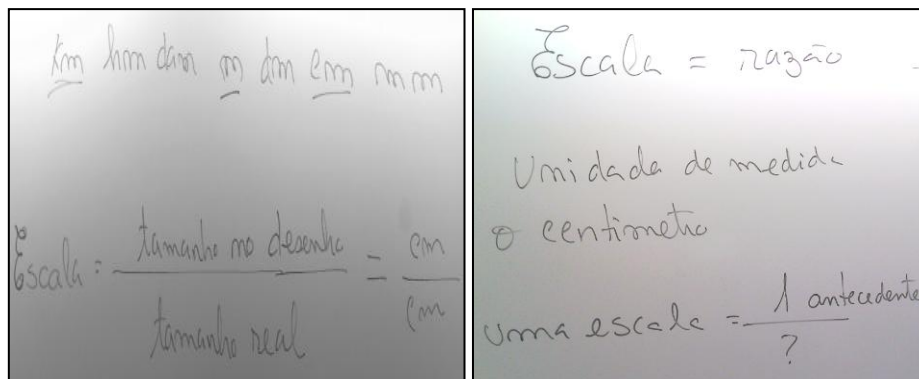 Km hm dam m dm cm mm
Escala = tamanho no desenho / tamanho real = cm / cm
Escala = razão
Unidade de medida
o centímetro
uma escala = 1 antecedente / ?